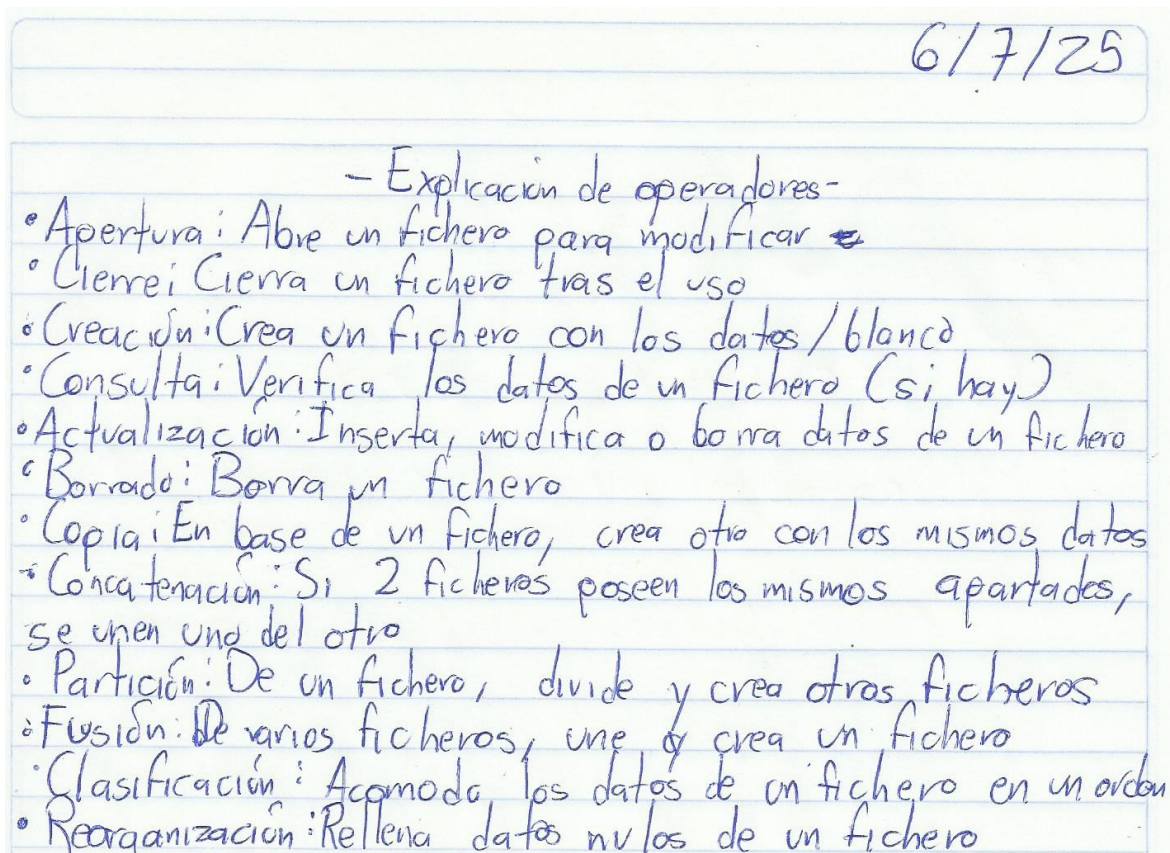 6/7/25
- Explicación de operadores-
• Apertura: Abre un fichero para modificar
• Cierre: Cierra un fichero tras el uso
• Creación: Crea un fichero con los datos/blanco
• Consulta: Verifica los datos de un fichero (si hay)
• Actualización: Inserta, modifica o borra datos de un fichero
• Borrado: Borra un fichero
• Copia: En base de un fichero, crea otro con los mismos datos
• Concatenación: Si 2 ficheros poseen los mismos apartados,
se unen uno del otro
• Partición: De un fichero, divide y crea otros ficheros
• Fusión: De varios ficheros, une y crea un fichero
• Clasificación: Acomoda los datos de un fichero en un orden
• Reorganización: Rellena datos nulos de un fichero